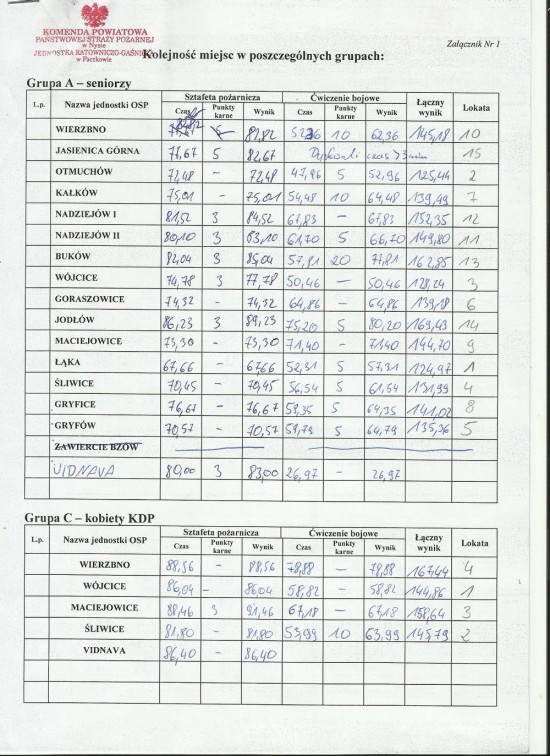 KOMENDA POWIATOWA
PAŃSTWOWEJ STRAŻY POŻARNEJ
w Nysie
JEDNOSTKA RATOWNICZO-GAŚNICZA
w Paczkowie
Załącznik Nr 1
Kolejność miejsc w poszczególnych grupach:
Grupa A – seniorzy
L.p. Nazwa jednostki OSP Sztafeta pożarnicza Ćwiczenie bojowe Łączny wynik Lokata
Czas Punkty karne Wynik Czas Punkty karne Wynik
WIERZBNO 82,82 10 62,36 145,18 10
JASIENICA GÓRNA 77,67 5 82,67 czas > 3 min 15
OTMUCHÓW 72,48 - 72,48 47,96 5 52,96 125,44 2
KAŁKÓW 75,01 - 75,01 54,48 10 64,48 139,49 7
NADZIEJÓW I 81,52 3 84,52 67,83 - 67,83 152,35 12
NADZIEJÓW II 80,10 3 83,10 61,70 5 66,70 149,80 11
BUKÓW 82,04 3 85,04 57,81 20 77,81 162,85 13
WÓJCICE 74,78 3 77,78 50,46 - 50,46 128,24 3
GORASZOWICE 74,32 - 74,32 64,86 - 64,86 139,18 6
JODŁÓW 86,23 3 89,23 75,20 5 80,20 169,43 14
MACIEJOWICE 73,30 - 73,30 71,40 - 71,40 144,70 9
ŁĄKA 67,66 - 67,66 52,31 5 57,31 124,97 1
ŚLIWICE 70,45 - 70,45 56,54 5 61,54 131,99 4
GRYFICE 76,67 - 76,67 59,35 5 64,35 141,02 8
GRYFÓW 70,57 - 70,57 59,79 5 64,79 135,36 5
ZAWIERCIE BZÓW
VIDNAVA 80,00 3 83,00 26,97 - 26,97
Grupa C – kobiety KDP
L.p. Nazwa jednostki OSP Sztafeta pożarnicza Ćwiczenie bojowe Łączny wynik Lokata
Czas Punkty karne Wynik Czas Punkty karne Wynik
WIERZBNO 88,56 - 88,56 78,88 - 78,88 167,44 4
WÓJCICE 86,04 - 86,04 58,82 - 58,82 144,86 1
MACIEJOWICE 88,46 3 91,46 67,18 - 67,18 158,64 3
ŚLIWICE 81,80 - 81,80 53,99 10 63,99 145,79 2
VIDNAVA 86,40 - 86,40